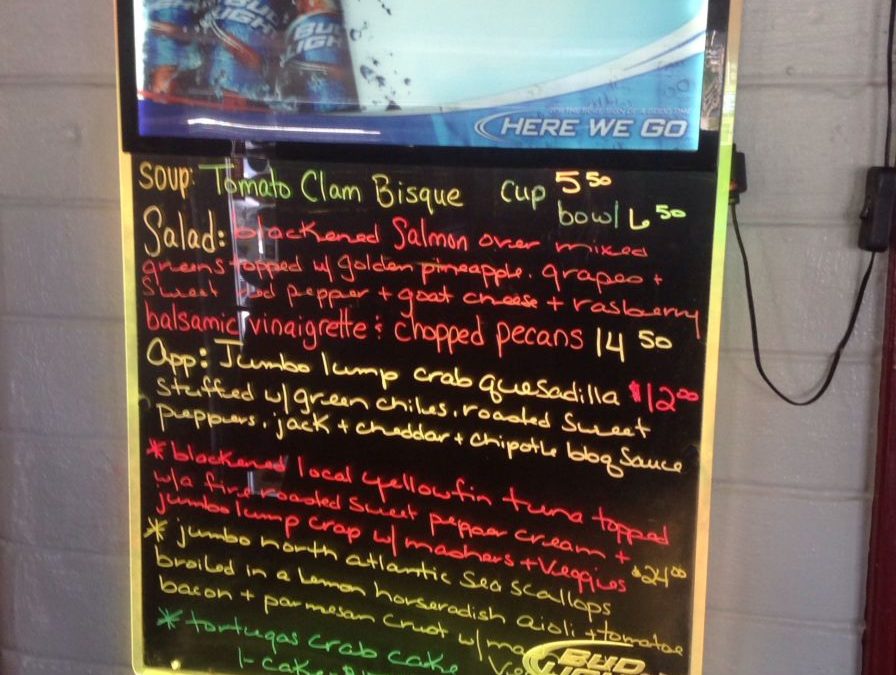 BUD LIGHT
BUD LIGH
HERE WE GO
Soup: Tomato Clam Bisque cup 5 50
bowl 6 50
Salad: blackened Salmon over mixed
greens topped w/ golden pineapple, grapes +
Sweet red pepper + goat cheese + rasberry
balsamic vinaigrette & chopped pecans 14 50
App: Jumbo lump crab quesadilla $12 00
Stuffed w/ green chiles, roasted Sweet
peppers, jack + cheddar + chipotle bbq Sauce
* blackened local yellowfin tuna topped
w/a fire roasted Sweet pepper cream +
jumbo lump crap w/ mashers + Veggies $24 00
* jumbo north atlantic Sea Scallops
broiled in a lemon horseradish aioli + tomatoe
bacon + parmesan crust w/
* tortugas crab cake
1 - cake
BUD LIGHT